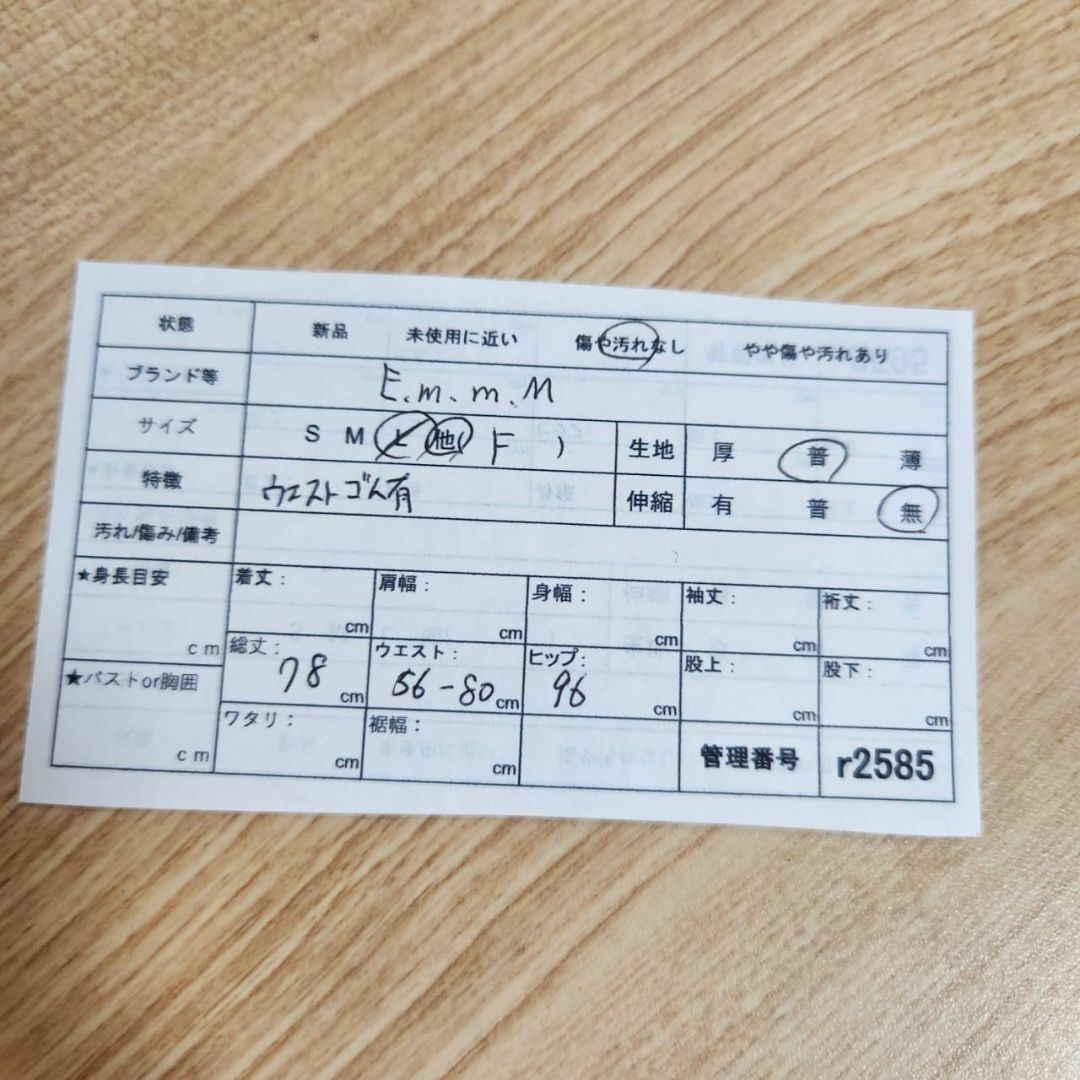 状態 新品 未使用に近い 傷や汚れなし やや傷や汚れあり
ブランド等 E.m.m.M
サイズ S M L 他( F ) 生地 厚 普 薄
特徴 ウエストゴム有 伸縮 有 普 無
汚れ/傷み/備考
★身長目安 cm 着丈: cm 肩幅: cm 身幅: cm 袖丈: cm 裄丈: cm
総丈: 78 cm ウエスト: 56-80 cm ヒップ: 96 cm 股上: cm 股下: cm
★バストor胸囲 cm
ワタリ: cm 裾幅: cm 管理番号 r2585